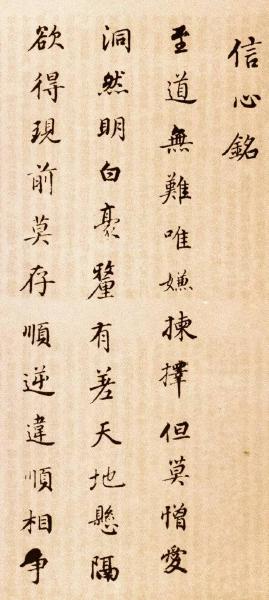 信心銘
至道無難唯嫌揀擇但莫憎愛
洞然明白毫釐有差天地懸隔
欲得現前莫存順逆違順相争